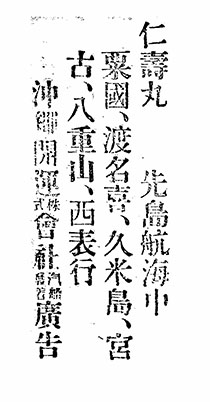 仁壽丸　先島航海中
粟國、渡名喜、久米島、宮
古、八重山、西表行
沖繩開運株式會社汽船廣告